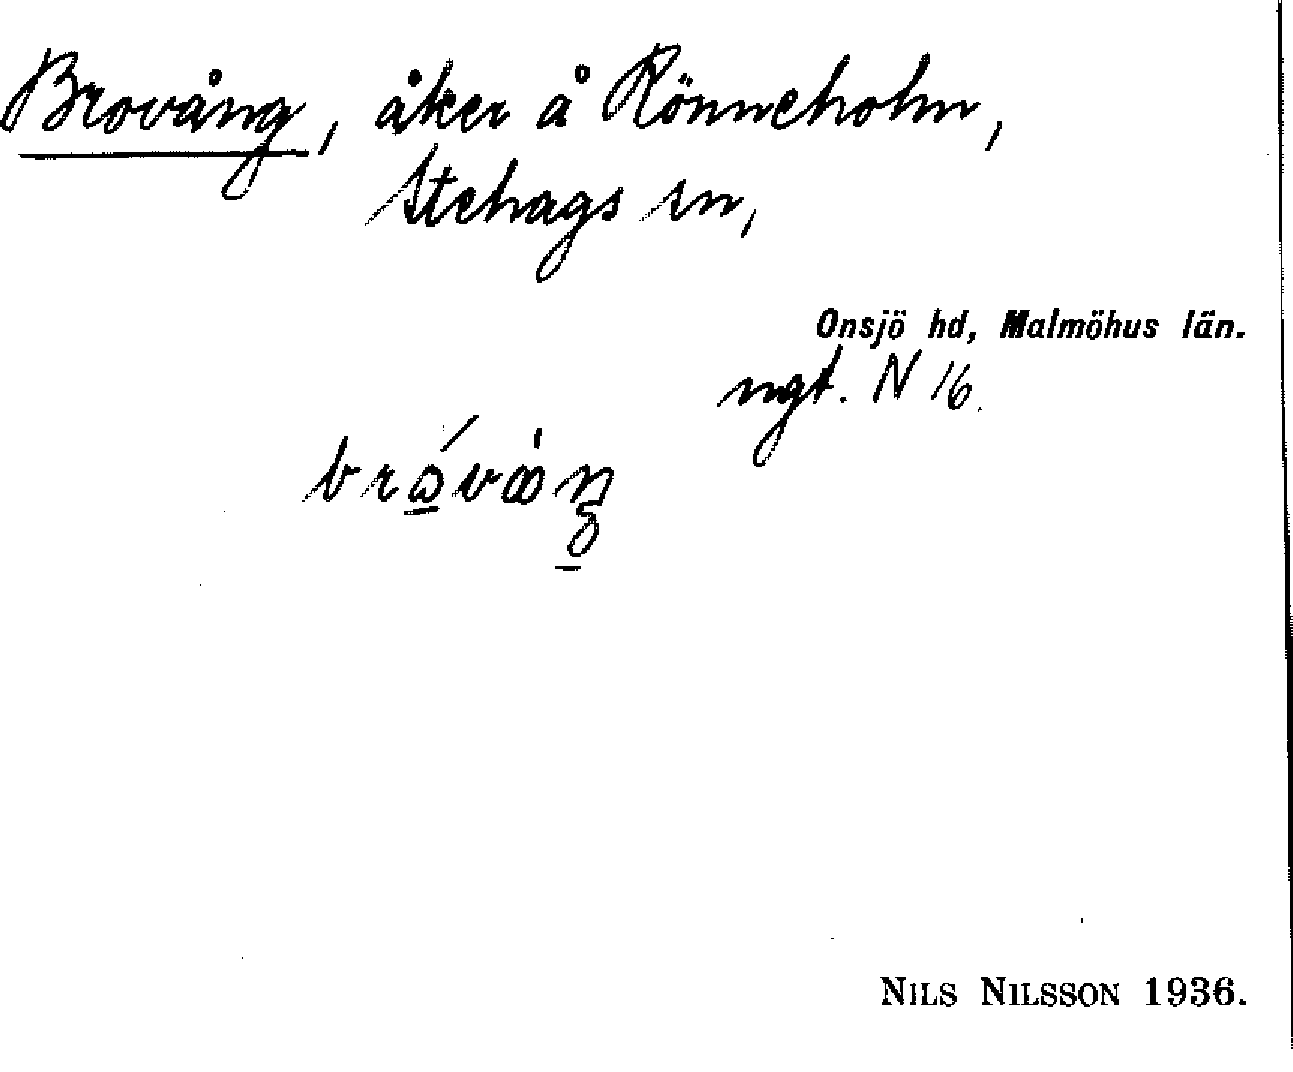 Brovång, åker å Rönneholm,
Stehags sn,
Onsjö hd, Malmöhus län.
ngt. N 16.
NILS NILSSON 1936.